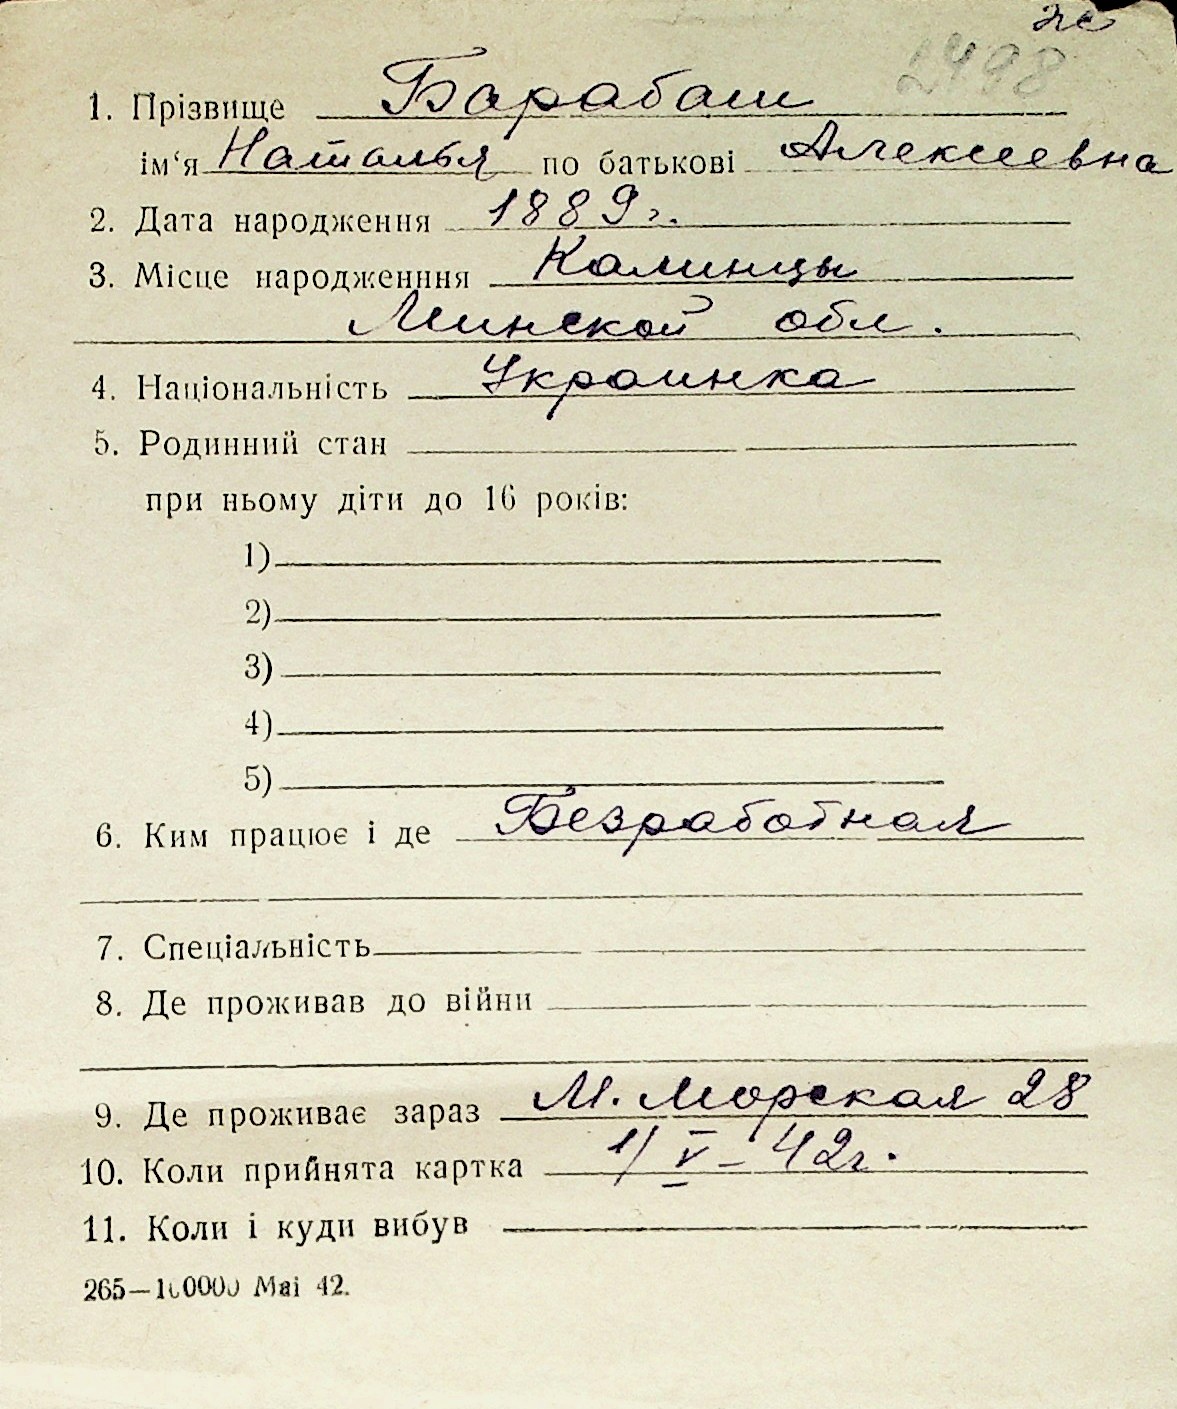 же
2498
1. Прізвище Барабаш
ім‘я Наталья по батькові Алексеевна
2. Дата народження 1889 г.
3. Місце народженння Калинцы
Минской обл.
4. Національність Украинка
5. Родинний стан
при ньому діти до 16 років:
1)
2)
3)
4)
5)
6. Ким працює і де Безработная
7. Спеціальність
8. Де проживав до війни
9. Де проживає зараз М. Морская 28
10. Коли прийнята картка 1/V–42г.
11. Коли і куди вибув
265—100000 Маі 42.